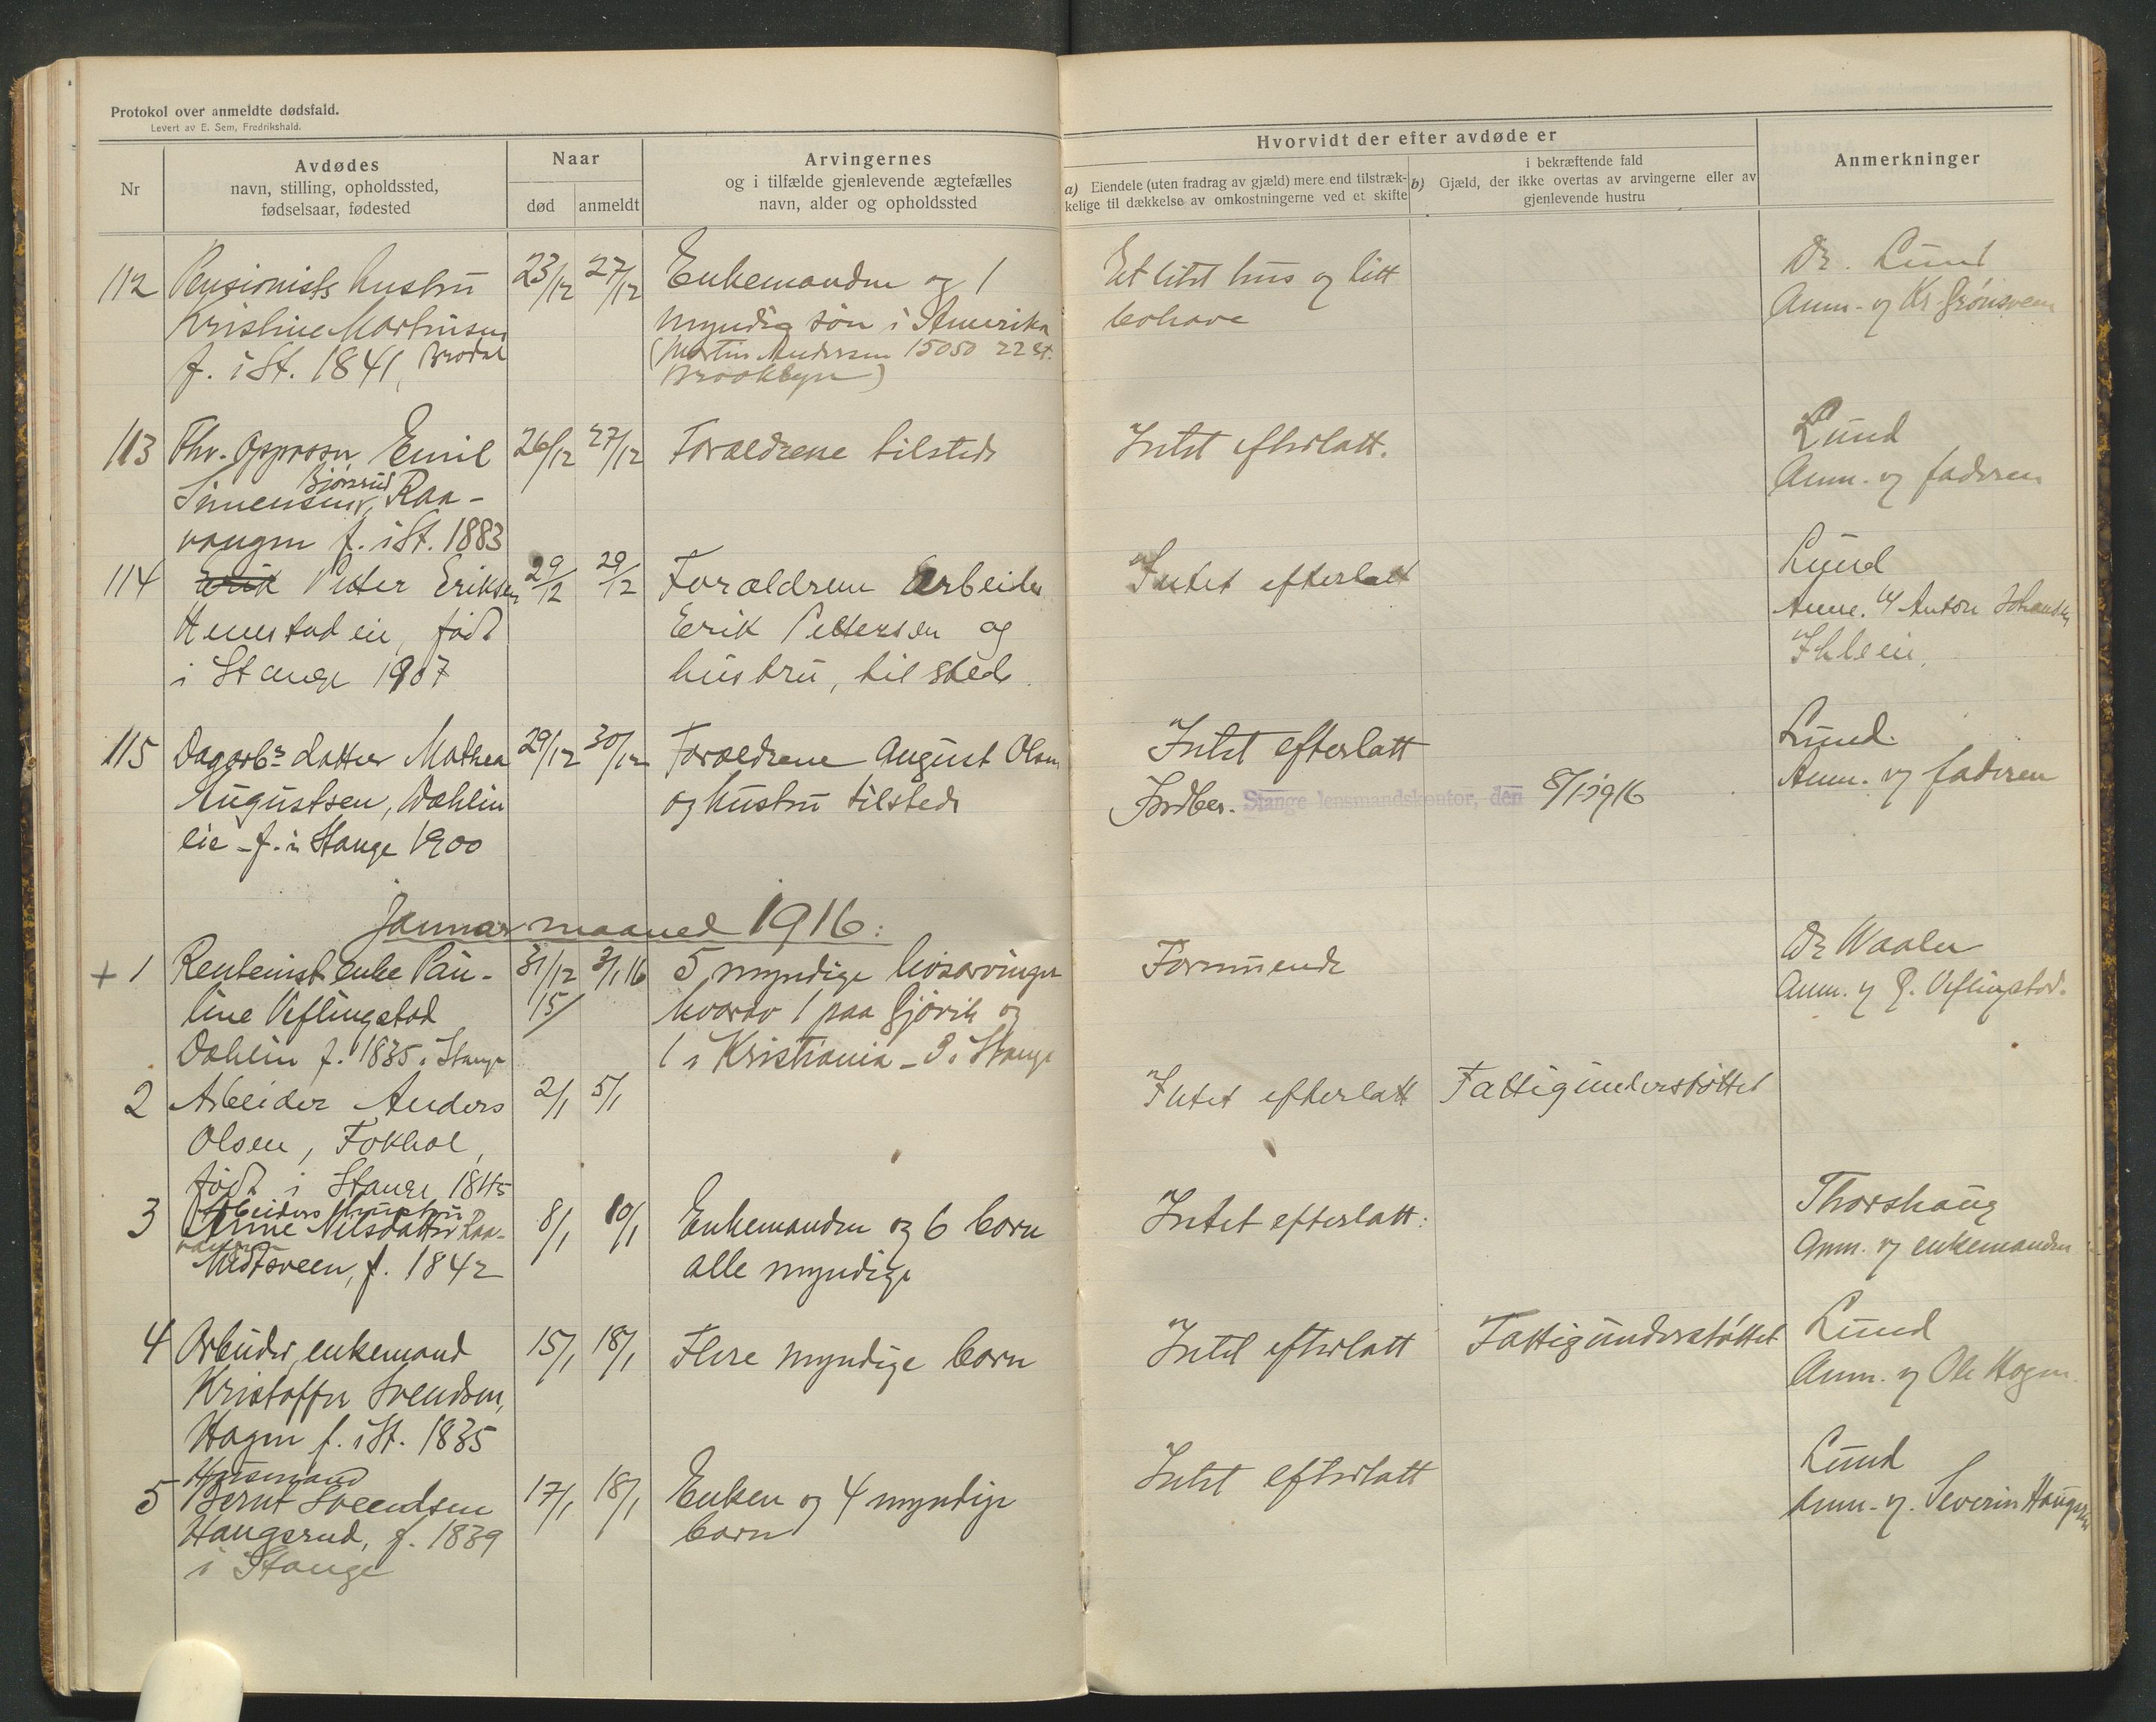 Protokol over anmeldte dødsfald.
Levert av E. Sem, Fredrikshald.
Nr
Avdødes
navn, stilling, opholdssted,
fødselsaar, fødested
Naar
død
anmeldt
Arvingernes
og i tilfælde gjenlevende ægtefælles
navn, alder og opholdssted
Hvorvidt der efter avdøde er
a) Eiendele (uten fradrag av gjæld) mere end tilstræk-
kelige til dækkelse av omkostningerne ved et skifte
i bekræftende fald
b) Gjæld, der ikke overtas av arvingerne eller av
gjenlevende hustru
Anmerkninger
112 Pensionists hustru 23/12 27/12 Enkemanden og 1 Et litet hus og litt Dr. Lund
Kristine Martinsen myndig søn i Amerika bohave Anm. og Kr. Grønsveen
f. i St. 1841, Brodal (Martin Andersen 15050 22 St.
Brooklyn)
113 Fhv. Oppassr Emil 26/12 27/12 Forældrene tilsteds Intet efterlatt. Lund
Bjørsrud
Simensen, Raa- Anm. og faderen
vangen f. i St. 1883
114 Erik Peter Eriksen 29/12 29/12 Forældrene Arbeider Intet efterlatt Lund
Hemstadeie, født Erik Pettersen og Anm. og Anton Johansen
i Stange 1907 hustru, tilstede. Ihleeie.
115 Dagarbs datter Mathea 29/12 30/12 Forældrene August Olsen Intet efterlatt Lund.
Augustsen, Dahlin og hustru tilsteds Indber. Stange lensmandskontor, den 8/1 1916 Anm. og faderen
eie - f. i Stange 1900
Januar maaned 1916:
+ 1 Rentenist enke Pau- 31/12 3/1 16 5 myndige livsarvinger Formuende Dr Waaler
line Veflingstad 15/ hvorav 1 paa Gjøvik og Anm. og P. Veflingstad.
Dahlin f. 1835 i Stange 1 i Kristiania - 3 i Stange
2 Arbeider Anders 2/1 5/1 Intet efterlatt Fattigunderstøttet
Olsen, Fokhol,
født i Stange 1845
Arbeiders hustru
3 Anne Nilsdatter Raa- 8/1 10/1 Enkemanden og 6 børn Intet efterlatt: Thorshaug
vangen
Midtsveen, f. 1842 alle myndige Anm. og enkemanden
4 Arbeider, enkemand 15/1 18/1 Flere myndige børn Intet efterlatt Fattigunderstøttet Lund
Kristoffer Svendsen, Anm. og Ole Hagen.
Hagen f. i St. 1835
Husmand
5 Bernt Svendsen 17/1 18/1 Enken og 4 myndige Intet efterlatt Lund
Haugsrud, f. 1839 børn Anm. og. Severin Haugsrud
i Stange